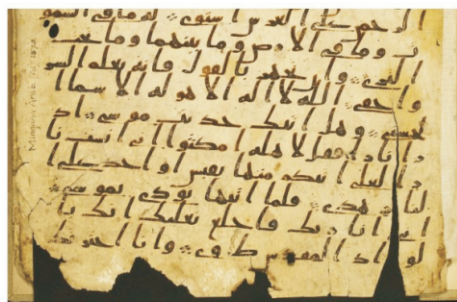 الرحمن على العرش استوى له ما في السمو
ت وما في الارض وما بينهما وما تحت
الثرى وان تجهر بالقول فانه يعلم السر
واخفى الله لا اله الا هو له الاسما ا
لحسنى وهل اتيك حديث موسى اذ
را نارا فقل لاهله امكثوا اني انست نا
را لعلي اتيكم منها بقبس او اجد على ا
لنار هدى فلما اتيها نودي يموسى
اني انا ربك فاخلع نعليك انك با
لواد المقدس طوى وانا اخترتك
Mingana